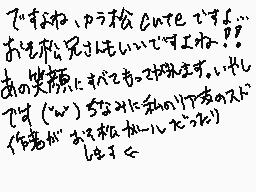 ですよね、カラ松cuteですよ…
おそ松兄さんもいいですよね!!
あの笑顔にすべてもってかれます。いやし
です(´ω`)ちなみに私のリア友のスド
作者が おそ松ガールだったり
します<